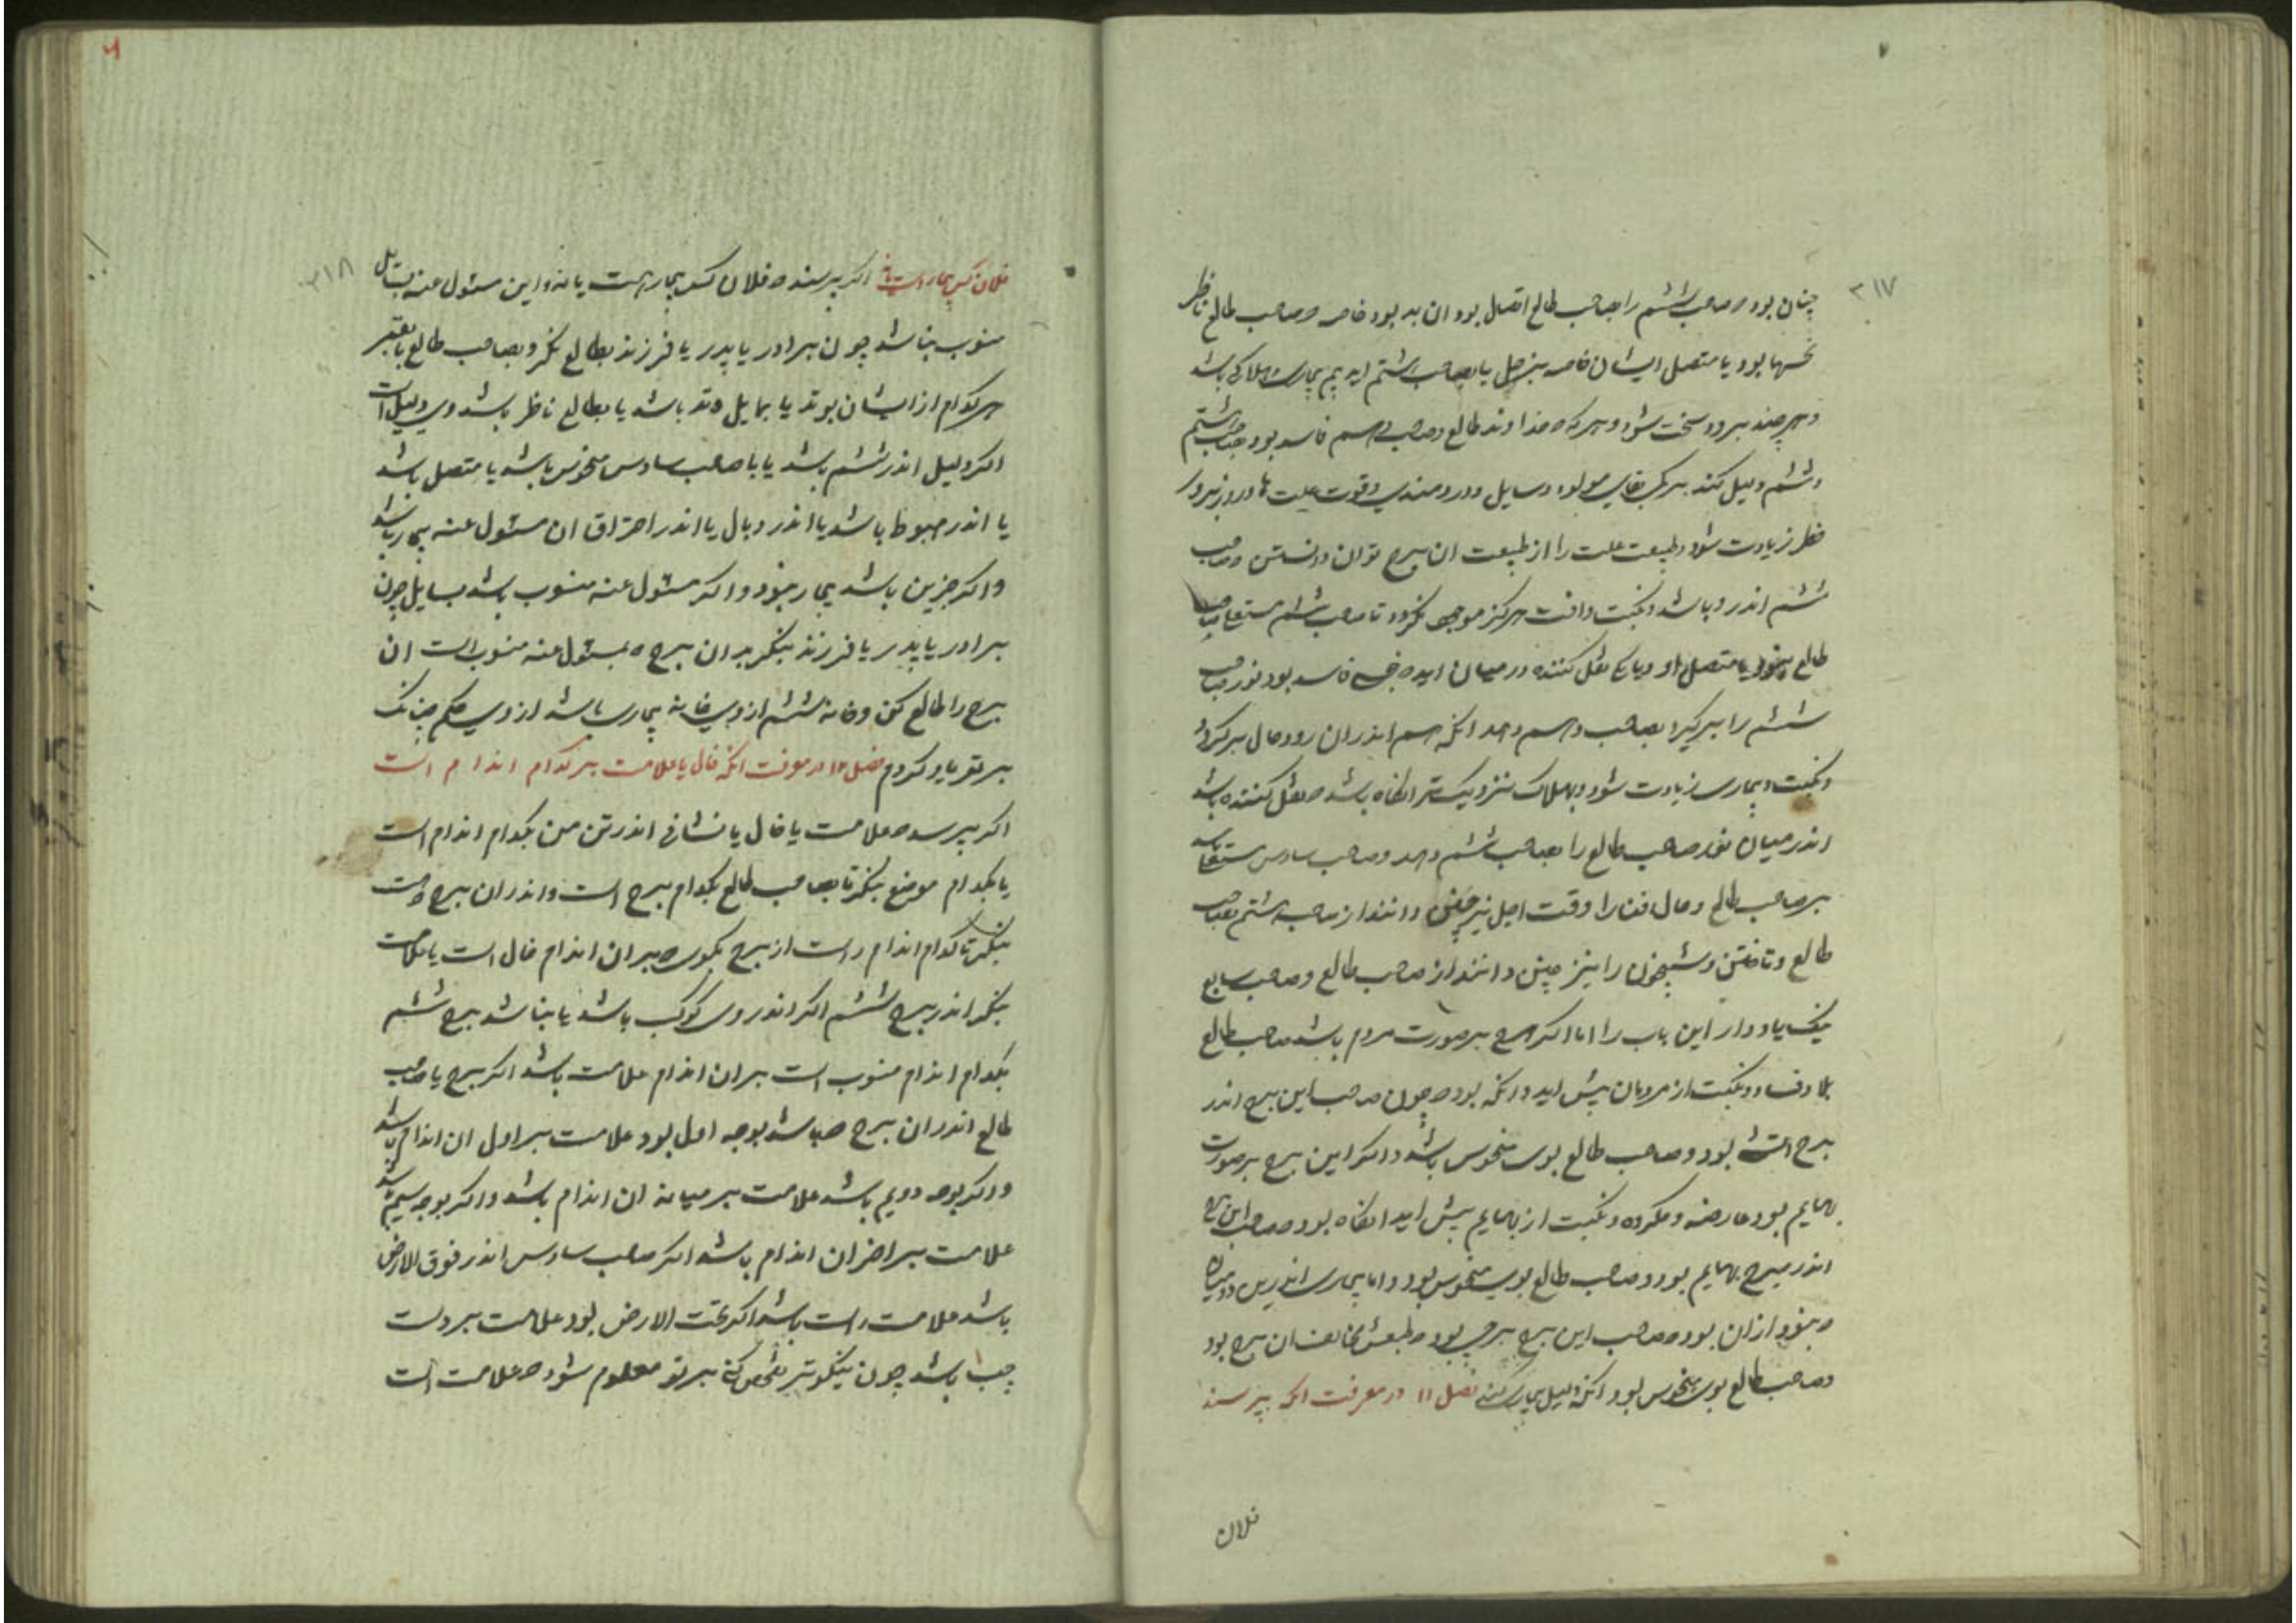 ۳۱۷
چنان بود و صاحب ششم را بصاحب طالع اتصال بود ان بد بود خاصه و صاحب طالع ناظر
نحسها بود یا متصل ایشان خاصه بزحل یا بصاحب هشتم اید بیم بیماری و هلاکی باشد
و هر چند برود سخت شود و هر که خداوند طالع و صاحب سهم فاسد بود بصاحب هشتم
و ششم دلیل کند بر مولود و سایل و دردمندی و قوت علت ها و روز بروز
خطر زیادت شود و طبیعت علت را از طبیعت ان برج توان دانستن و صاحب
ششم اندر و باشد و نکبت و افت هرگز موجب نگردد تا صاحب ششم مستعلی بصاحب
طالع یا متصل او و یا نقل کننده در میان اید فاسد بود نور صاحب
ششم را برگیرد بصاحب سهم دهد انگه سهم اندران رود حال برگردد
و نکبت و بیماری زیادت شود و بهلاک نزدیک تر انگاه باشد و نقل کننده باشد
اندر میان نور صاحب طالع را بصاحب ششم دهد و صاحب سادس مستعلی باشد
بر صاحب طالع و حال فنا را وقت اجل نیز چنین دانند از صاحب هشتم بصاحب
طالع و تاختن و شبیخون را نیز چنین دانند از صاحب طالع و صاحب سابع
نیک یاد دار این باب را اما اگر برج بر صورت مردم باشد صاحب طالع
بلا و فساد و نکبت از مردمان پیش اید و انگه بود چون صاحب این برج اندر
برج بود و صاحب طالع بوی منحوس باشد و اگر این برج بر صورت
بهایم بود عارضه و مکروه و نکبت از بهایم پیش اید انگاه بود صاحب این برج
اندر برج بهایم بود و صاحب طالع بوی منحوس بود و اما بیماری اندرین دو میانه
و بنود ازان بود صاحب این برج برجی بود و طبعش مخالف ان برج بود
و صاحب طالع بوی منحوس بود انگه دلیل بیماری کند فصل ۱۱ در معرفت انکه پرسند
فلان
۳۱۸
فلان کس بیمار است یا نه اگر پرسند فلان کس بیمار هست یا نه و این مسئول عنه بسایل
منسوب نباشد چون برادر یا پدر یا فرزند بطالع نگر و بصاحب طالع یا بقمر
هر کدام از ایشان بوتد یا بمایل وتد باشد یا بطالع ناظر باشد وی دلیل است
اگر دلیل اندر ششم باشد یا با صاحب سادس منحوس باشد یا متصل باشد
یا اندر هبوط باشد یا اندر وبال یا اندر احتراق ان مسئول عنه بیمار باشد
و اگر جزین باشد بیمار نبود و اگر مسئول عنه منسوب باشد بسایل چون
برادر یا پدر یا فرزند بنگر بدان برج که بمسئول عنه منسوب است ان
برج را طالع کن و خانه ششم از وی خانه بیماری باشد از وی حکم چنانک
بر تو یاد کردم فصل ۱۲ در معرفت انکه خال یا علامت بر کدام اندام است
اگر پرسد علامت یا خال یا نشانی اندر تن من بکدام اندام است
یا بکدام موضع بنگر تا صاحب طالع بکدام برج است و اندران برج
بنگر تا کدام اندام راست از برج بکوی بران اندام خال است یا علامت
بنگر اندر برج ششم اگر اندر وی کوکب باشد یا نباشد برج ششم
بکدام اندام منسوب است بران اندام علامت باشد اگر برج یا صاحب
طالع اندران برج باشد بوجه اول بود علامت بر اول ان اندام باشد
و اگر بوجه دویم باشد علامت بر میانه ان اندام باشد و اگر بوجه سیم باشد
علامت بر اخر ان اندام باشد اگر صاحب سادس اندر فوق الارض
باشد علامت راست باشد اگر تحت الارض بود علامت بر دست
چپ باشد چون نیکوتر تفحص کنی بر تو معلوم شود علامت است